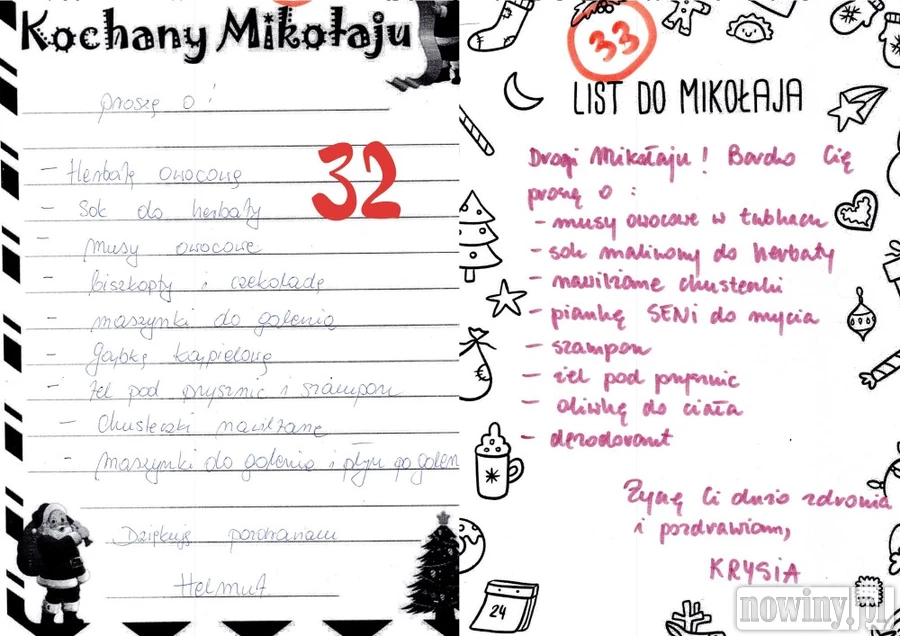 Kochany Mikołaju
proszę o!
32
- Herbatę owocową
- Sok do herbaty
- musy owocowe
- biszkopty i czekoladę
- maszynki do golenia
- Gąbkę kąpielową
- żel pod prysznic i szampon
- Chusteczki nawilżane
- maszynki do golenia i płyn po golen
Dziękuję pozdrawiam
Helmut
33
LIST DO MIKOŁAJA
Drogi Mikołaju! Bardzo Cię
proszę o:
- musy owocowe w tubkach
- sok malinowy do herbaty
- nawilżane chusteczki
- piankę SENI do mycia
- szampon
- żel pod prysznic
- oliwkę do ciała
- dezodorant
Życzę Ci dużo zdrowia
i pozdrawiam,
KRYSIA
24
nowiny.pl